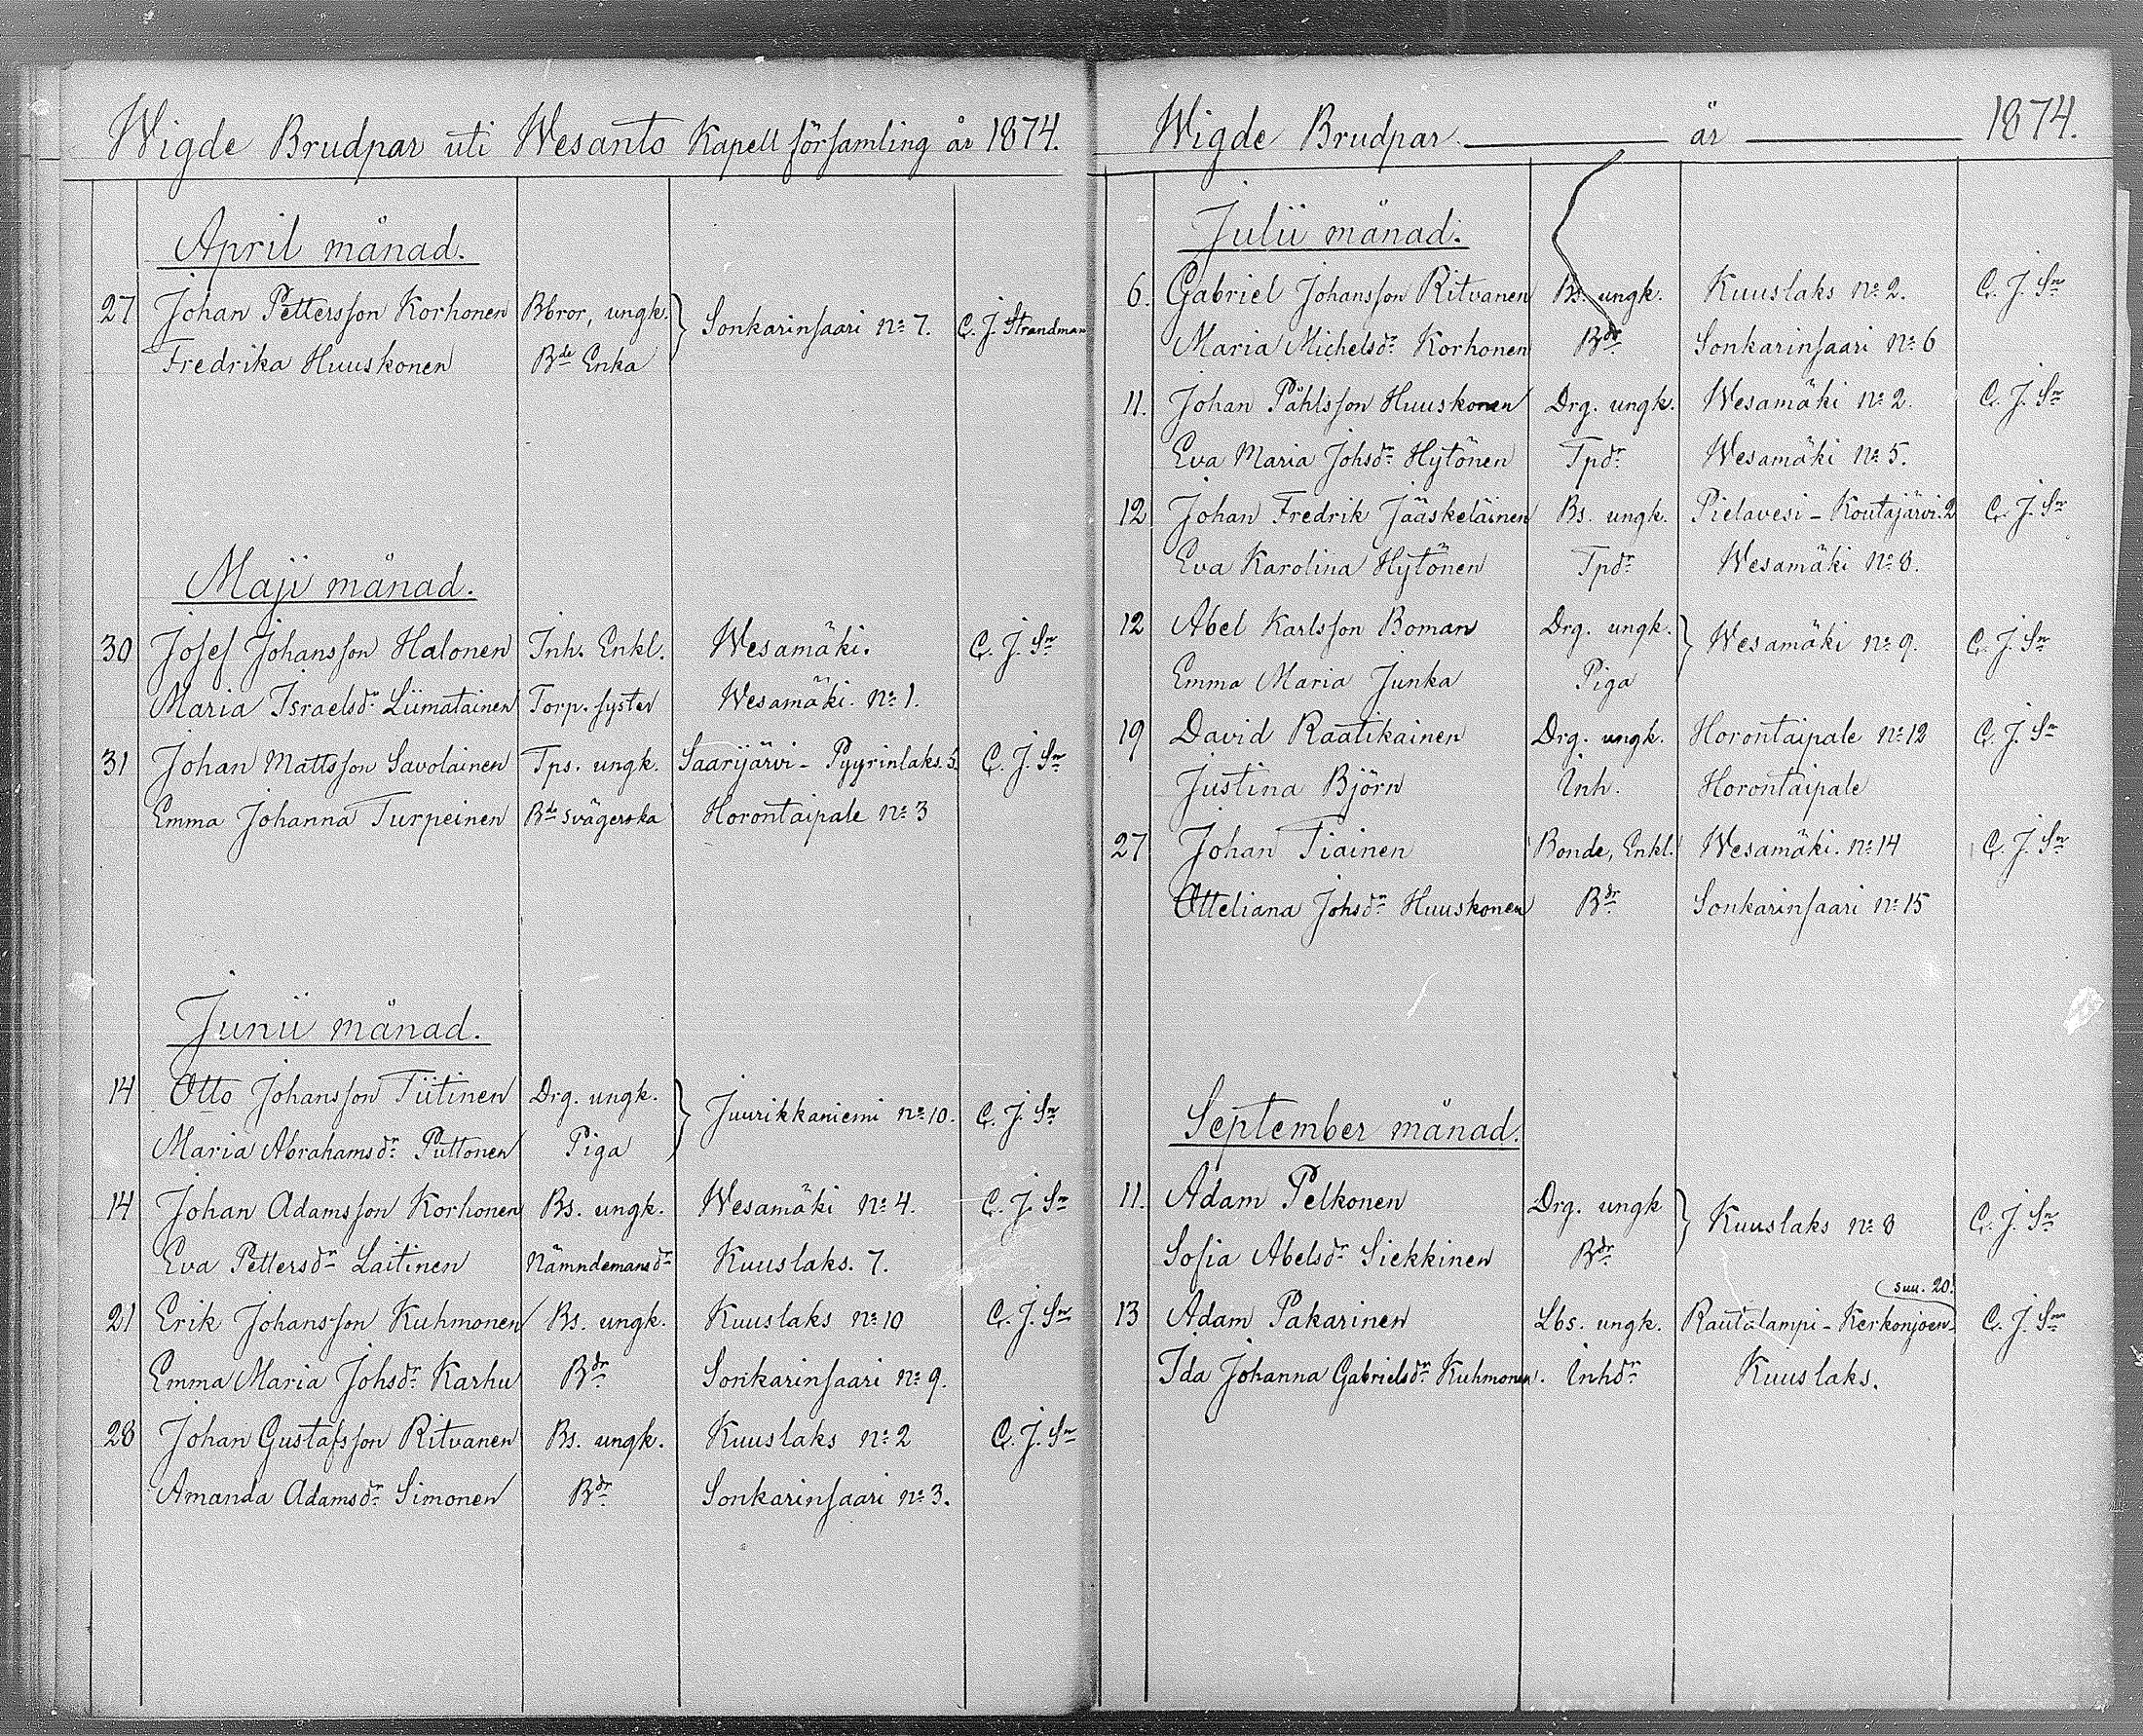 Wigde Brudpar uti Wesanto Kapell församling år 1874.
April månad.
27 Johan Pettersson Korhonen Bbror, ungk. } Sonkarinsaari No 7. C. J. Strandman
Fredrika Huuskonen Bde Enka
Maji månad.
30 Josef Johansson Halonen Inh. Enkl. Wesamäki. C. J. Sn
Maria Israelsdr Liimatainen Torp. syster Wesamäki. No 1.
31 Johan Mattsson Savolainen Tps. ungk. Saarijärvi - Pyyrinlaks. 5. C. J. Sn
Emma Johanna Turpeinen Bde Svägerska Horontaipale No 3
Junii månad.
14 Otto Johansson Tiitinen Drg. ungk. } Juurikkaniemi No 10. C. J. Sn
Maria Abrahamsdr Puttonen Piga
14 Johan Adamsson Korhonen Bs. ungk. Wesamäki No 4. C. J. Sn
Eva Pettersdr Laitinen Nämndemansdr Kuuslaks. 7.
21 Erik Johansson Kuhmonen Bs. ungk. Kuuslaks No 10 C. J. Sn
Emma Maria Johsdr Karhu Bdr Sonkarinsaari No 9.
28 Johan Gustafsson Ritvanen Bs. ungk. Kuuslaks No 2 C. J. Sn
Amanda Adamsdr Simonen Bdr Sonkarinsaari No 3.
Wigde Brudpar år 1874.
Julii månad.
6. Gabriel Johansson Ritvanen Bs. ungk. Kuuslaks No 2. C. J. Sn
Maria Michelsdr Korhonen Bdr Sonkarinsaari No 6
11. Johan Påhlsson Huuskonen Drg. ungk. Wesamäki No 2. C. J. Sn
Eva Maria Johsdr Hytönen Tpdr Wesamäki No 5.
12 Johan Fredrik Jääskeläinen Bs. ungk. Pielavesi - Koutajärvi. 2 C. J. Sn
Eva Karolina Hytönen Tpdr Wesamäki No 8.
12 Abel Karlsson Boman Drg. ungk. } Wesamäki No 9. C. J. Sn
Emma Maria Junka Piga
19 David Raatikainen Drg. ungk. Horontaipale No 12 C. J. Sn
Justina Björn Inh. Horontaipale
27 Johan Tiainen Bonde, Enkl. Wesamäki. No 14 C. J. Sn
Otteliana Johsdr Huuskonen Bdr Sonkarinsaari No 15
September månad.
11. Adam Pelkonen Drg. ungk } Kuuslaks No 8 C. J. Sn
Sofia Abelsdr Siekkinen Bdr
suu. 20.
13 Adam Pakarinen Lbs. ungk. Rautalampi - Kerkonjoen- C. J. Sn
Ida Johanna Gabrielsdr Kuhmonen. Inhdr Kuuslaks.